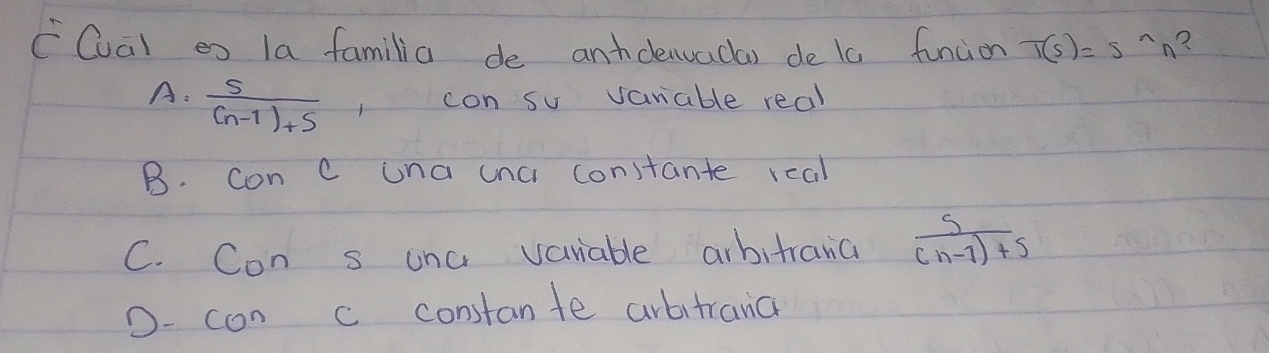 ¿Cuál es la familia de antiderivadas de la función T(s)=s^n?
A. s/(n-1)+s, con su variable real
B. con c una una constante real
C. Con s una variable arbitraria s/(n-1)+s
D- con c constante arbitraria